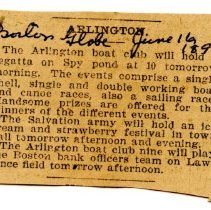 ARLINGTON
Boston Globe June 16, 189
The Arlington boat club will hold
egatta on Spy pond at 10 tomorrow
morning. The events comprise a singl
hell, single and double working boat
nd canoe races, also a sailing race
Handsome prizes are offered for the
inners of the different events.
The Salvation army will hold an ic
ream and strawberry festival in tow
all tomorrow afternoon and evening.
The Arlington boat club nine will play
he Boston bank officers team on Law
ence field tomorrow afternoon.